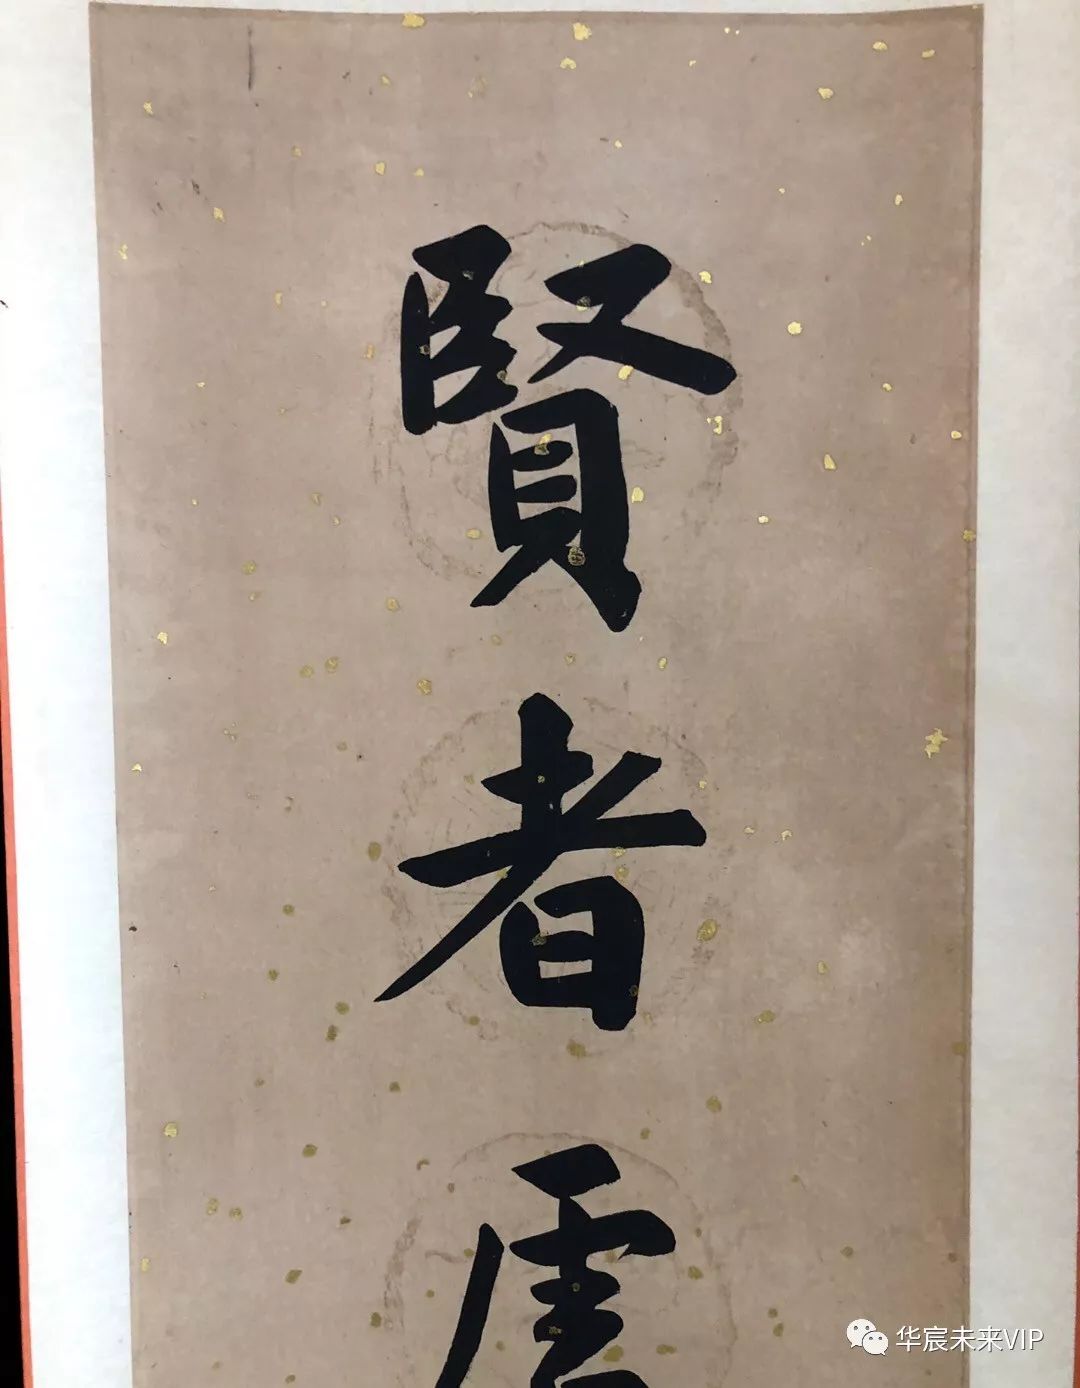 賢者
华宸未来VIP